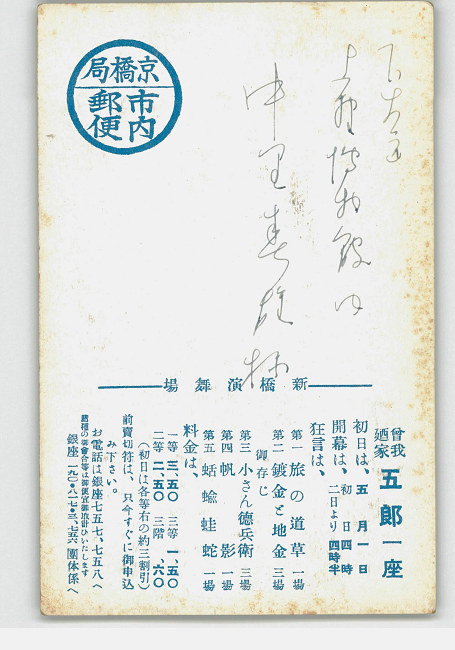 京橋局
市内
郵便
上野博物館内
中里春雄様
新橋演舞場
曾我廼家 五郎一座
初日は、五月一日
開幕は、初日四時
二日より四時半
狂言は、
第一 旅の道草 一場
第二 鍍金と地金 三場
御存じ
第三 小さん德兵衛 三場
第四 帆影 一場
第五 蛞蝓蛙蛇 一場
料金は、
一等 三、五〇 三等 一、五〇
二等 二、五〇 三階 、六〇
(初日は各等右の約三割引)
前賣切符は、只今すぐに御申込
み下さい。
お電話は銀座七五七、七五八へ
銀座 一九〇・八一七・三、七五六 團体係へ